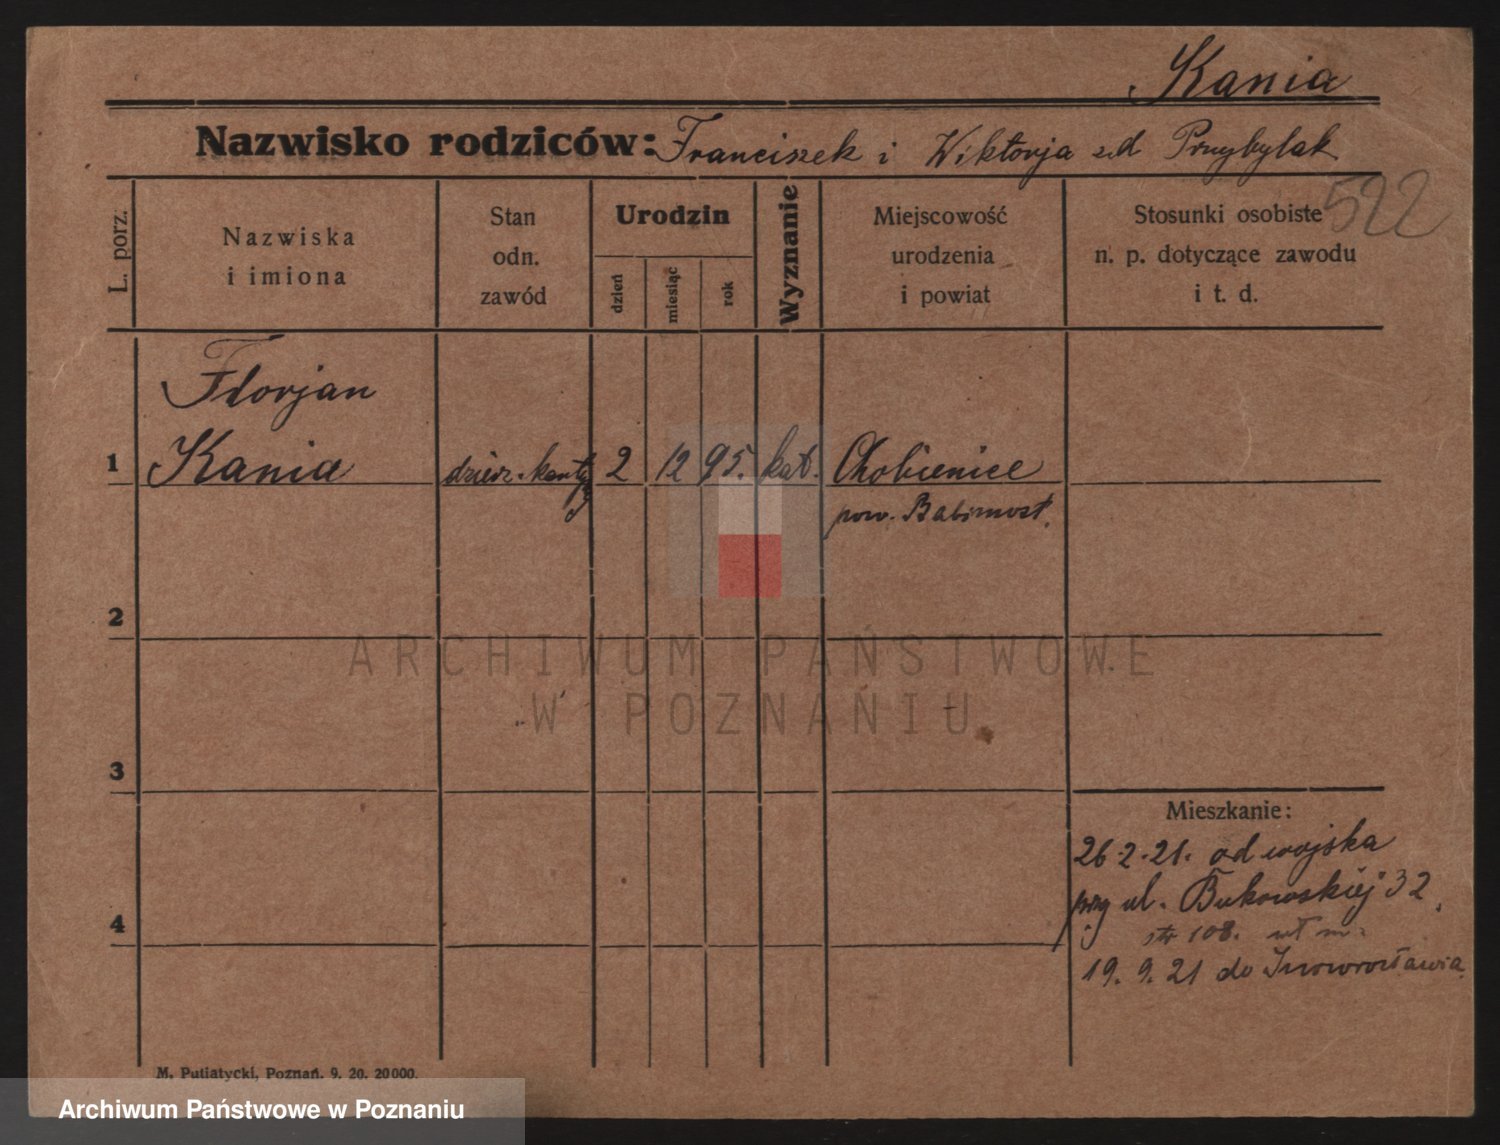 Kania
Nazwisko rodziców: Franciszek i Wiktorja zd Przybylak
522
L. porz.
Nazwiska
i imiona
Stan
odn.
zawód
Urodzin
dzień
miesiąc
rok
Wyznanie
Miejscowość
urodzenia
i powiat
Stosunki osobiste
n. p. dotyczące zawodu
i t. d.
Florjan
1 Kania 2 12 95. kat. Chobienice
pow. Babimost.
2
ARCHIWUM PAŃSTWOWE
W POZNANIU
3
Mieszkanie:
26.2.21. od wojska
przy ul. Bukowskiej 32
4
str 108.
19. 9. 21 do Inowrocławia
M. Putiatycki, Poznań. 9. 20. 20000.
Archiwum Państwowe w Poznaniu